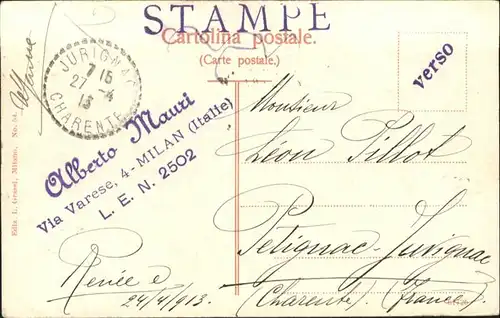 STAMPE
Cartolina postale.
(Carte postale.)
verso
JURIGNAC
7 15
27 -4
13
CHARENTE
Alberto Mauri
Via Varese, 4 - MILAN (Italie)
L. E. N. 2502
Monsieur
Léon Pillot
Petignac-Jurignac
(Charente) (France)
Renée e
24/4/913.